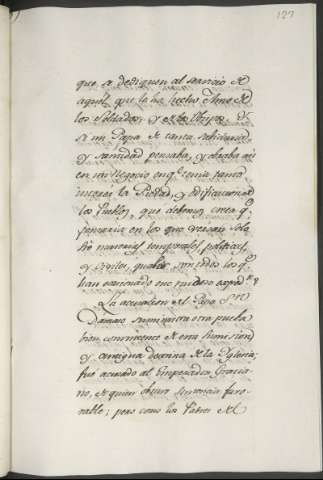 127
que se dediquen al servicio de
aquel que lo ha hecho Amo de
los Soldados, y de la Si
a un Papa de tanta
y santidad pensaba, y obraba asi
en un Negocio en q. tenia tanto
interes la Piedad, y edificacion de
los Pueblos, que debemos creer q.
pensaria en los que versan solo
sre materias temporales, politicas
y civiles, quales son todos los q.
han ocasionado
La acusacion del Papa Sn.
Damaso suministra otra prueba
bien convincente de esta sumision
y antigua doctrina de la Yglesia;
fué acusado al Emperador Gracia-
no, de quien obtuvo sentencia favo-
rable; pero como los Padres del